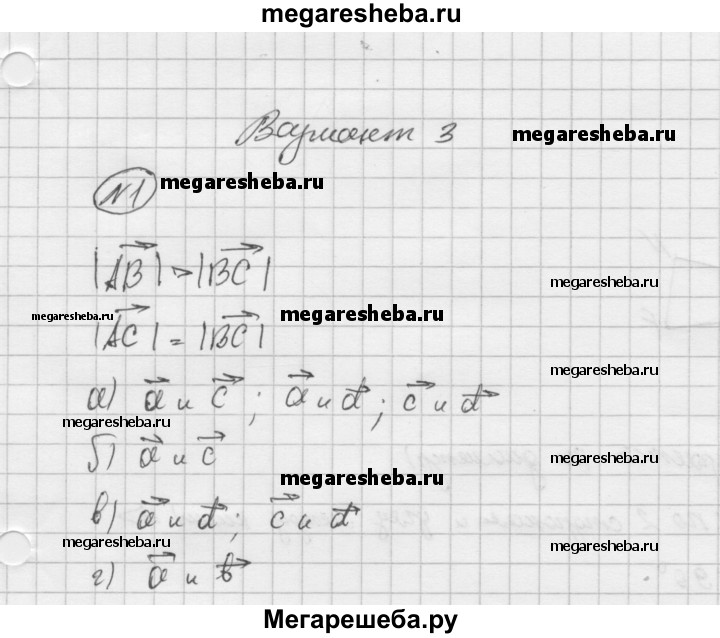 megaresheba.ru
Вариант 3 megaresheba.ru
№1 megaresheba.ru
|AB| > |BC|
megaresheba.ru
megaresheba.ru |AC| = |BC| megaresheba.ru
megaresheba.ru
а) a и c ; a и d ; c и d
megaresheba.ru
б) a и c megaresheba.ru
megaresheba.ru
в) a и d; c и d
megaresheba.ru megaresheba.ru
г) a и b
Мегарешеба.ру